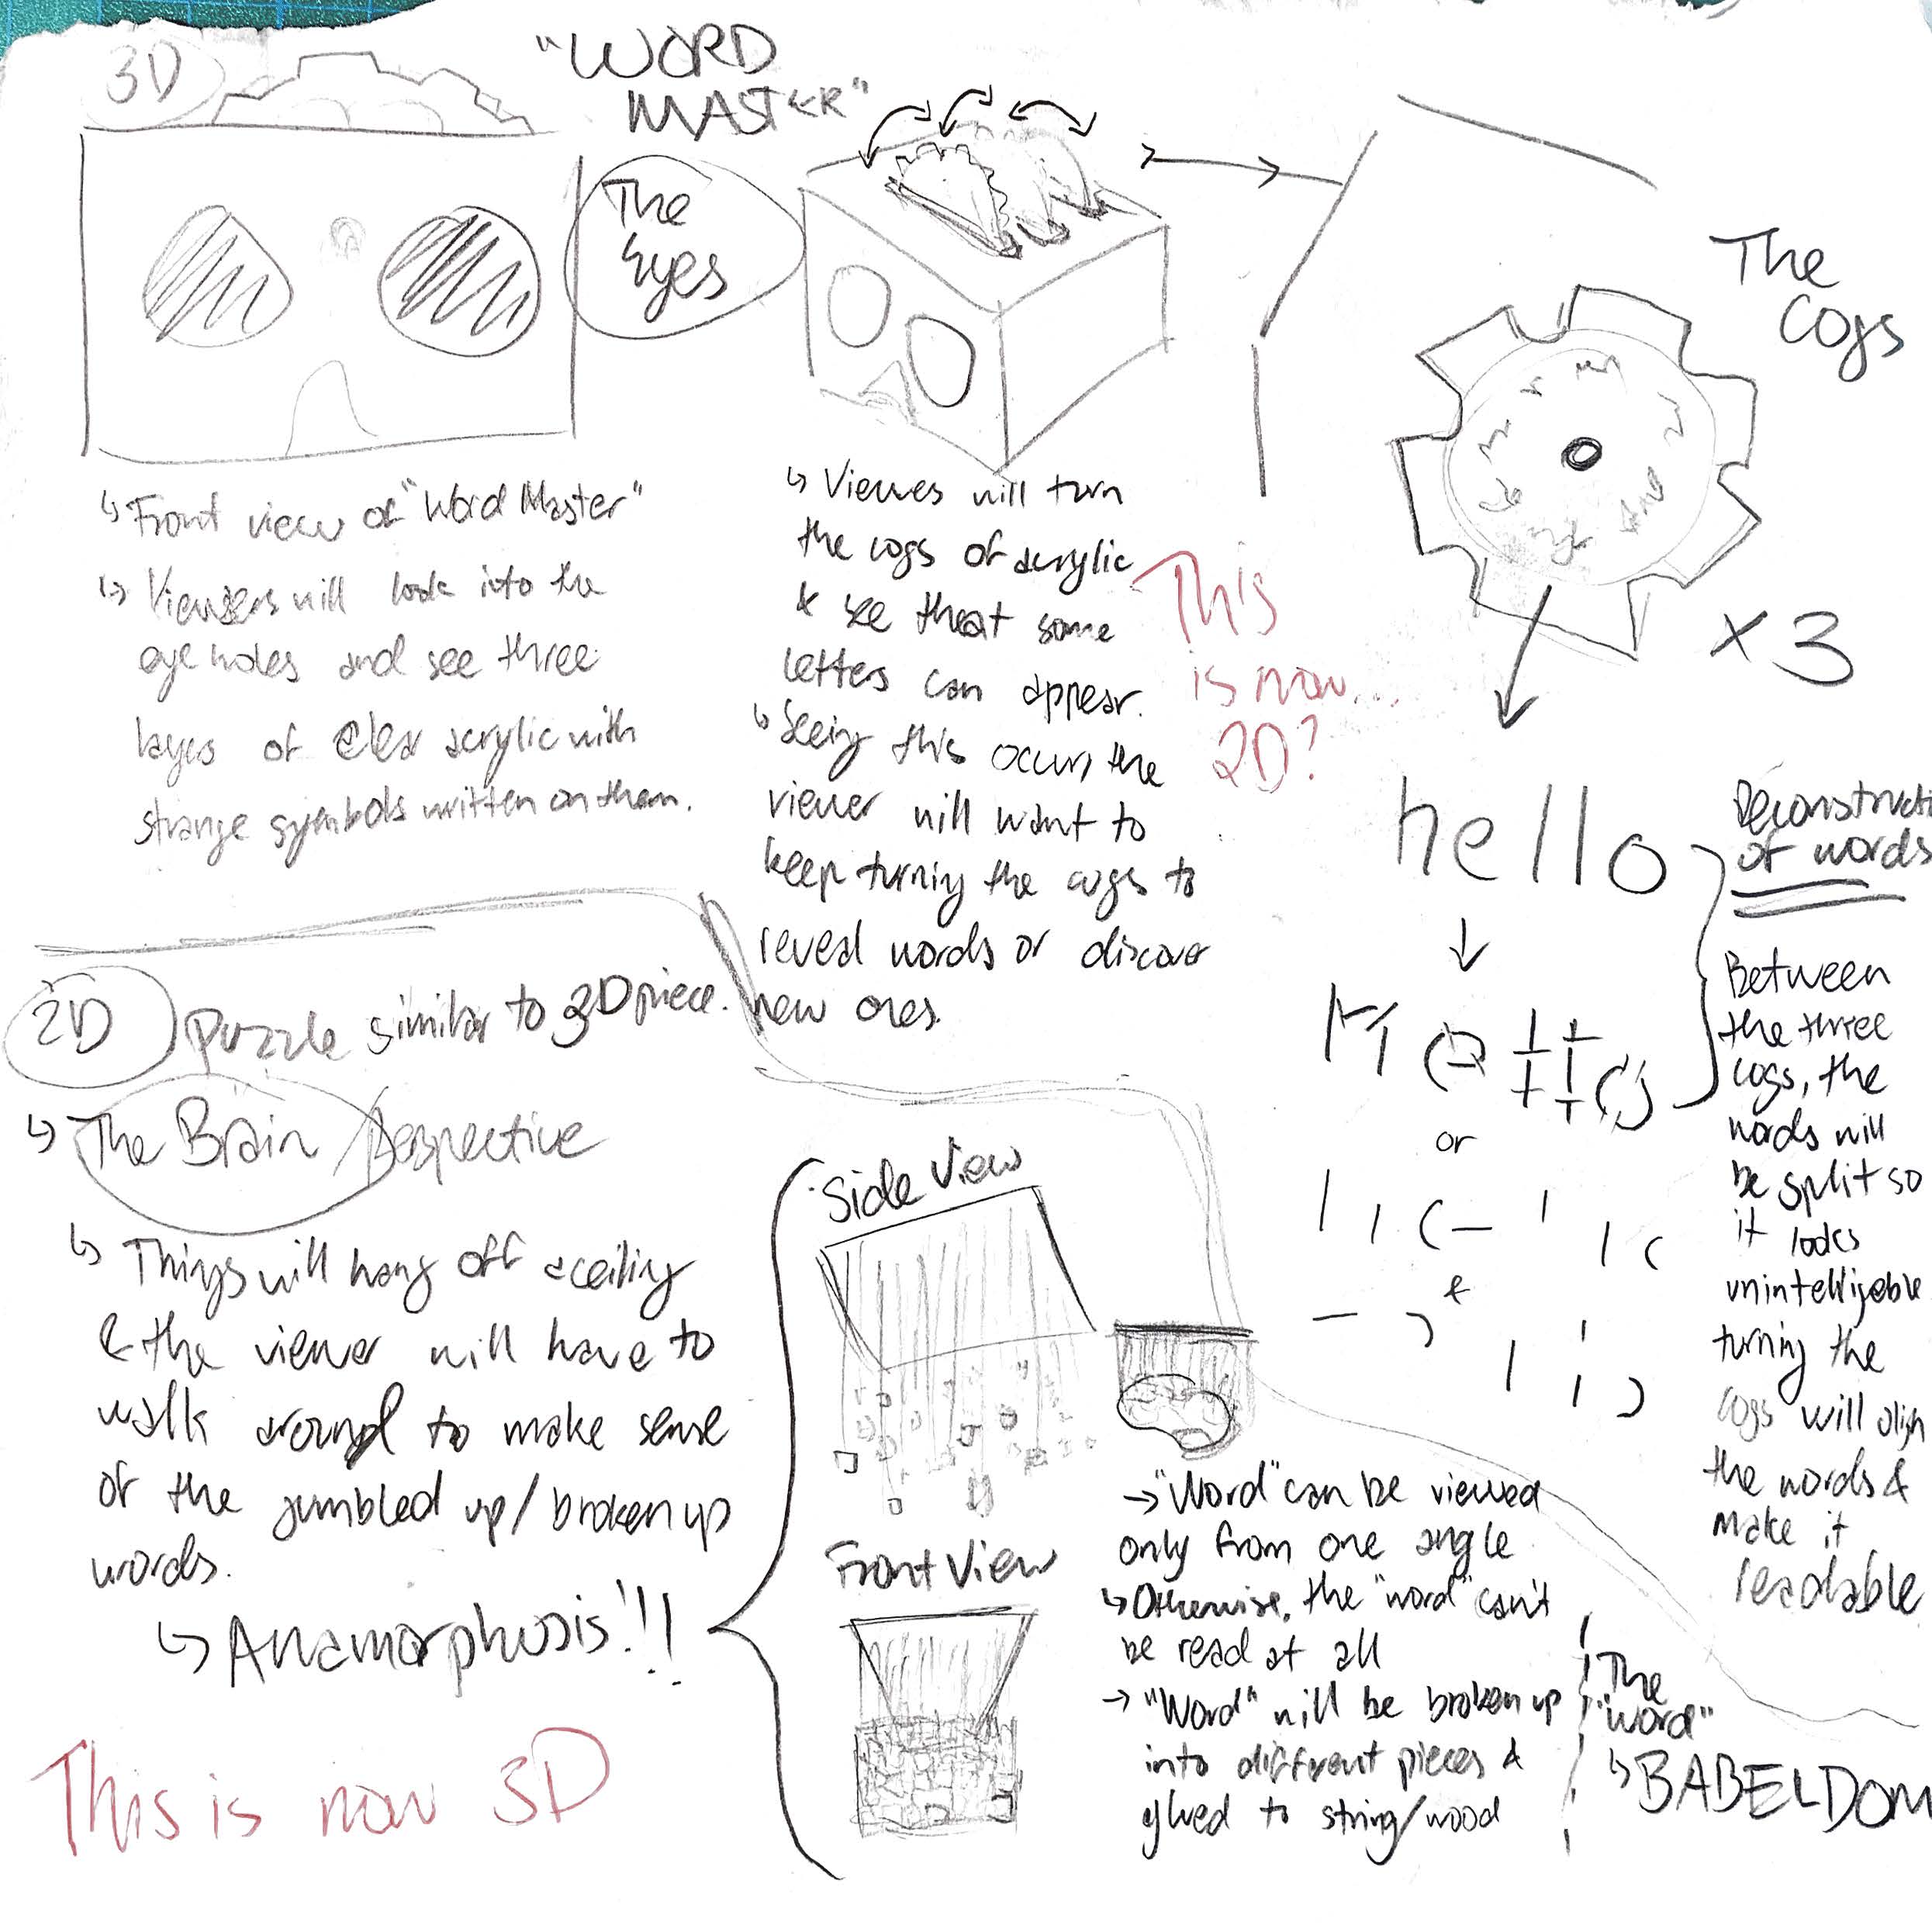 3D
"WORD
MASTER"
The
Eyes
↳ Front view of "Word Master"
↳ Viewers will look into the
eye holes and see three
layers of clear acrylic with
strange symbols written on them.
↳ Viewes will turn
the cogs of acrylic
& see that some
letters can appear.
↳ Seeing this occur, the
viewer will want to
keep turning the cogs to
reveal words or discover
new ones.
This
is now...
2D?
The
Cogs
x3
hello
or
&
Deconstructi
of words
Between
the three
cogs, the
words will
be split so
it looks
unintelligeble
turning the
cogs will align
the words &
make it
readable
2D
Puzzle similar to 3D piece.
↳ The Brain / Perspective
↳ Things will hang off a ceiling
& the viewer will have to
walk around to make sense
of the jumbled up/broken up
words.
↳ Anamorphosis!!!
This is now 3D
Side View
Front View
→ "Word" can be viewed
only from one angle
↳ Otherwise, the "word" can't
be read at all
→ "Word" will be broken up
into different pieces &
glued to string/wood
The
"word"
↳ BABELDOM